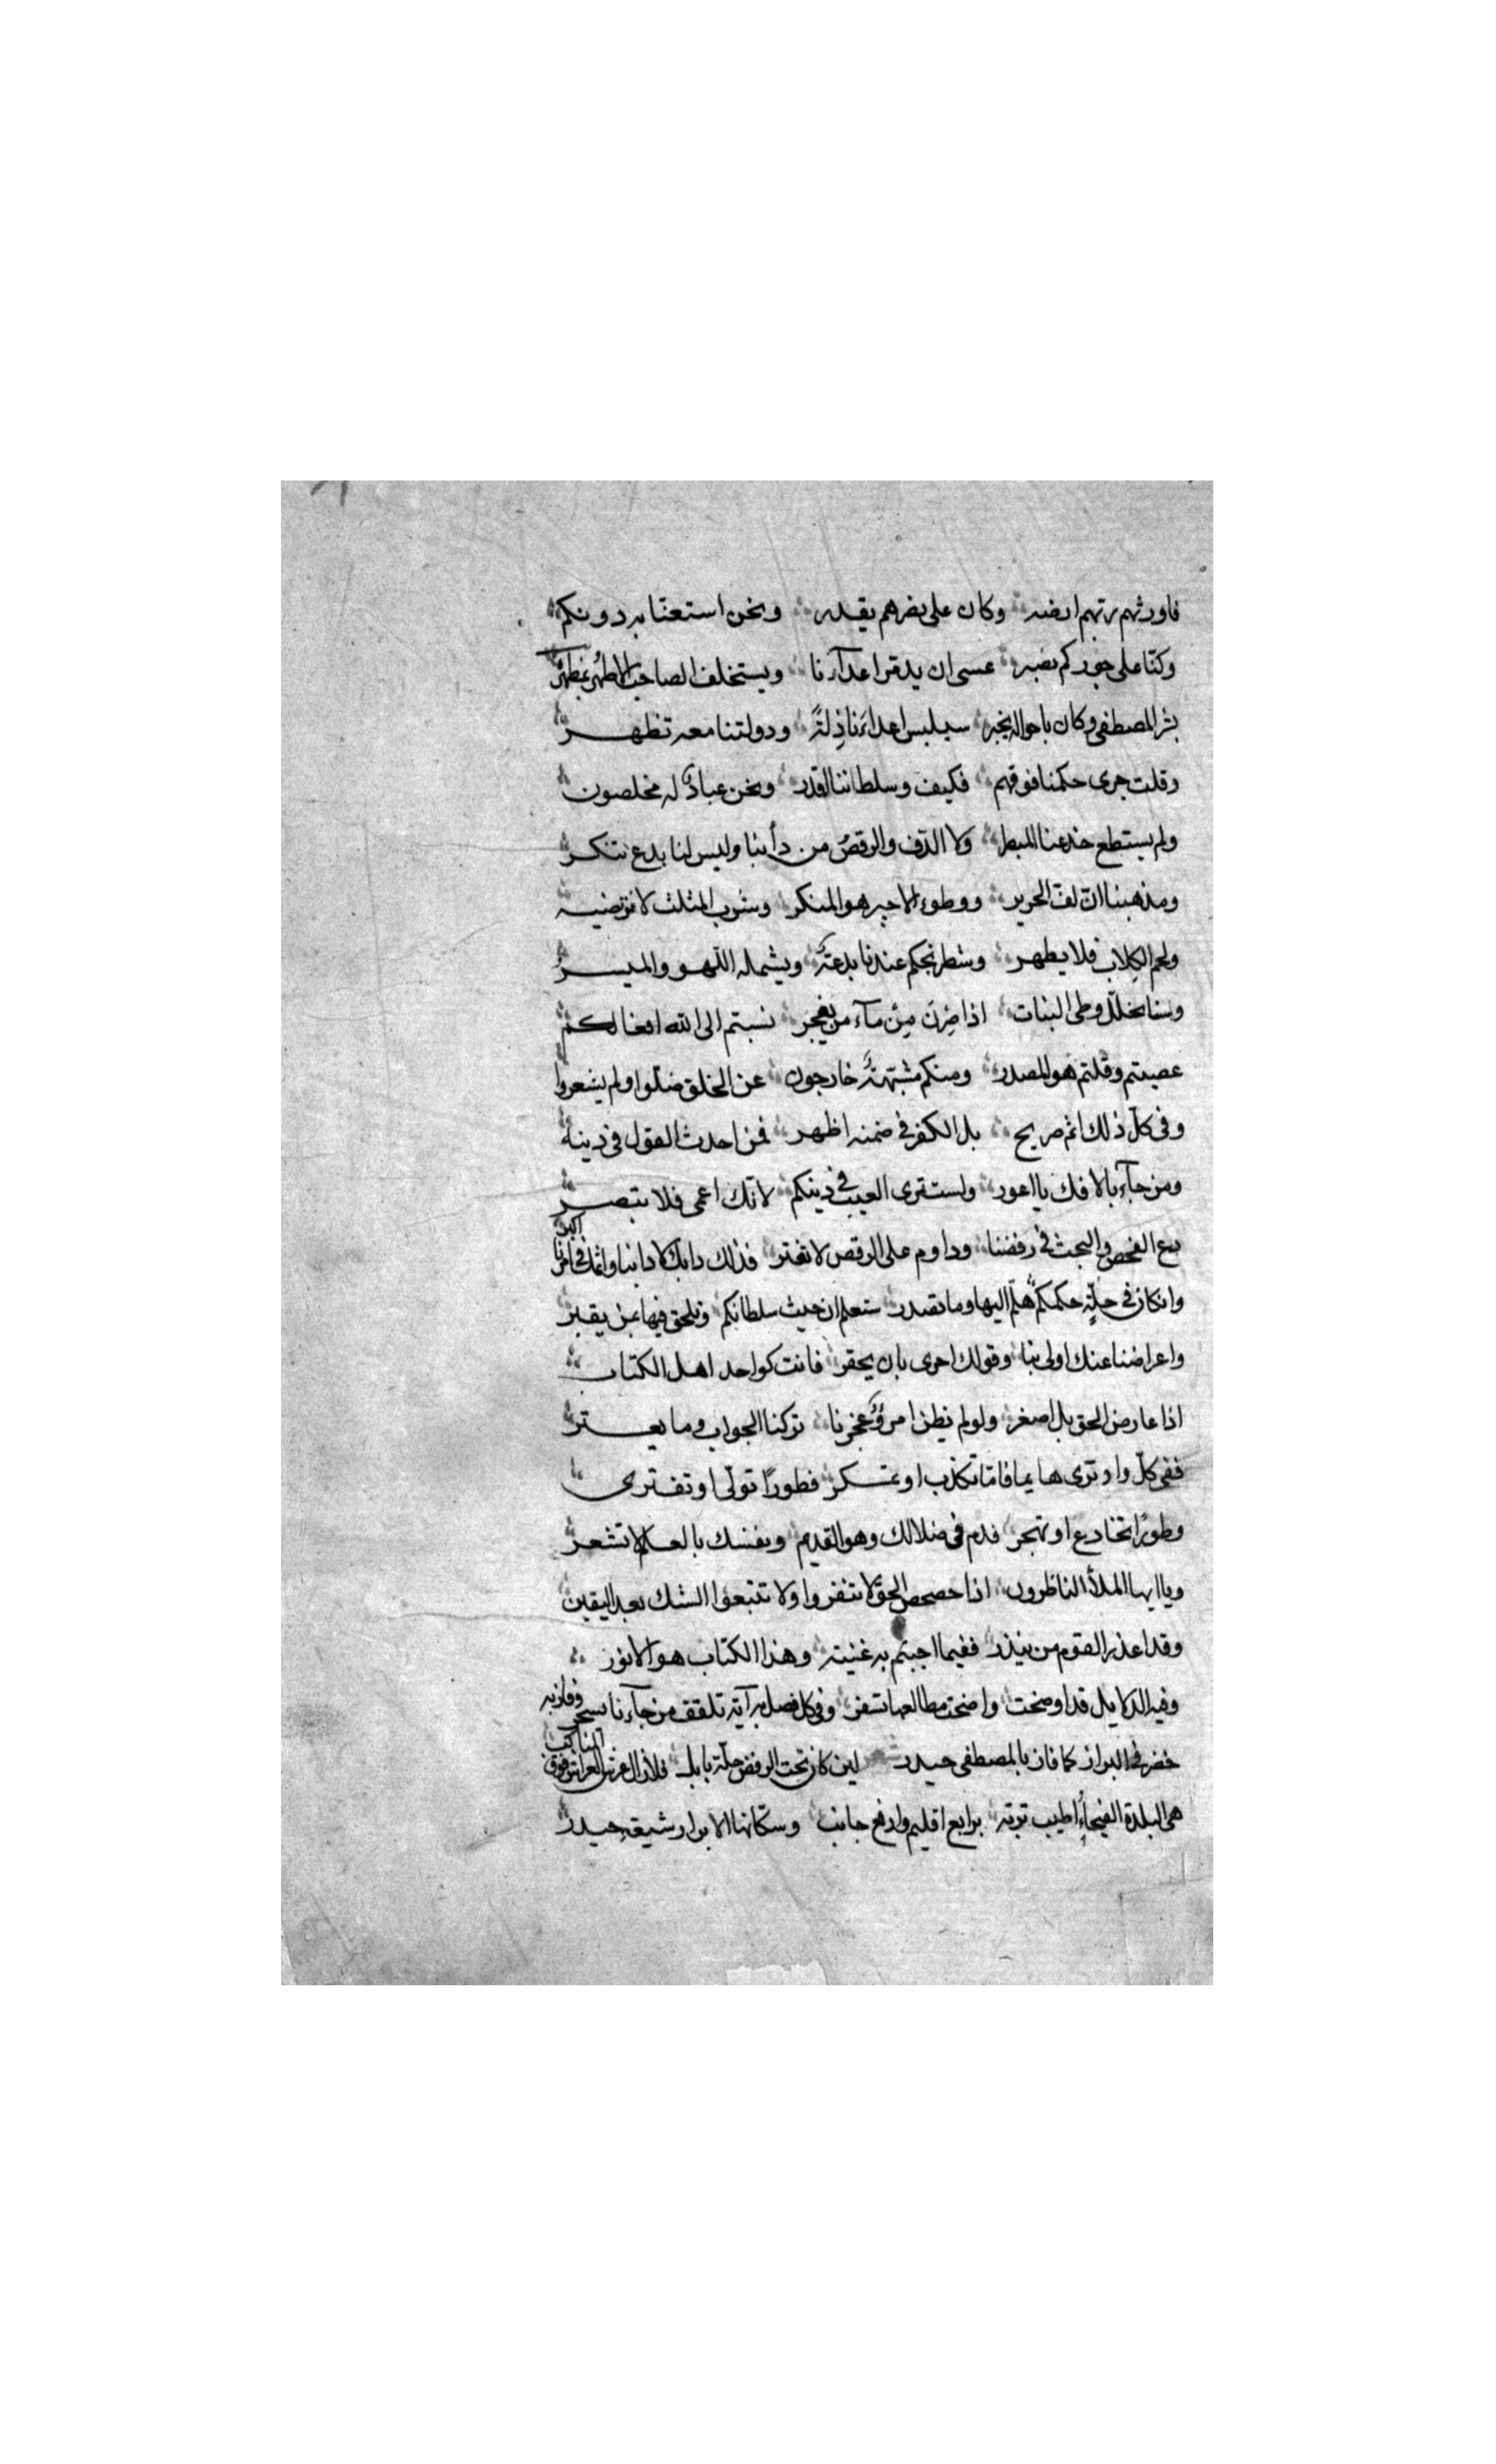 فاورثهم ربهم ارضه وكان على نصرهم يقدر ونحن استعنا به دونكم
وكنا على جوركم نصبر عسى ان يدمر اعدآءنا ويستخلف الصاحب الاطهر
بشر المصطفى وكان باحواله يخبر سيلبس اعداءنا ذلةً ودولتنا معه تظهر
وقلت جرى حكمنا فوقهم فكيف وسلطاننا القدر ونحن عبادٌ له مخلصون
ولم يستطع خدعنا المبطر ولا الدف والرقص من دأبنا وليس لنا بدع تنكر
ومذهبنا ان لف الحرير ووطوء الاجير هو المنكر وشرب المثلث لا نرتضيه
ولحم الكلاب فلا يطهر وشطرنجكم عندنا بدعةٌ ويشمله اللهو والميسر
وسنا يحلل وطى البنات اذا صِرنَ مِن مآء من يفجر نسبتم الى الله افعالكم
عصيتم وقلتم هو المصدر ومنكم مشبهةٌ خارجون عن الخلق ضلّوا ولم يشعروا
وفى كلّ ذلك اثم صريح بل الكفر فى ضمنه اظهر فمن احدث القول فى دينه
ومن جآء بالافك يا اعور ولست ترى العيب فى دينكم لانّك اعمى فلا تبصر
دع الفحص والبحث فى رفضنا وداوم على الرقص لا تفتر فذلك دابك لا دابنا واثمك فى امرنا اكبر
وانكان فى حلّةٍ حكمكم هلمّ اليها وما تصدر ستعلم ان حيث سلطانكم وتلحق فيها بمن يقبر
واعراضنا عنك اولى بنا وقولك احرى بان يحقر فانت كواحد اهل الكتاب
اذا عارض الحق بل اصغر ولو لم يظن امرؤٌ عجزنا تركنا الجواب وما يعتر
ففى كلّ واد ترى هايما فامّا تكذب او تمكر فطورًا تولّى او تفترى
وطورًا تخادع او تهجر فدم فى ضلالك وهو القديم ونفسك بالعدل لا تشعر
ويا ايها الملأ الناظرون اذا حصحص الحق لا تنفروا ولا تتبعوا الشك بعد اليقين
وقد اعذر القوم من ينذر ففيما اجبتم به غنية وهذا الكتاب هو الانور
وفيه الدلايل قد اوضحت واضحت مطالعها تسفر وفى كل فصل به آية تلقف من جآءنا يسحر وفاز به
خضر فى البراز كما فاز بالمصطفى حيدر لين كان تحت الرفض حلّة بابل فلا زال
هى البلدة الفيحآء اطيب تربة برابع اقليم وارفع جانب وسكّانها الابرار شيعة حيدر